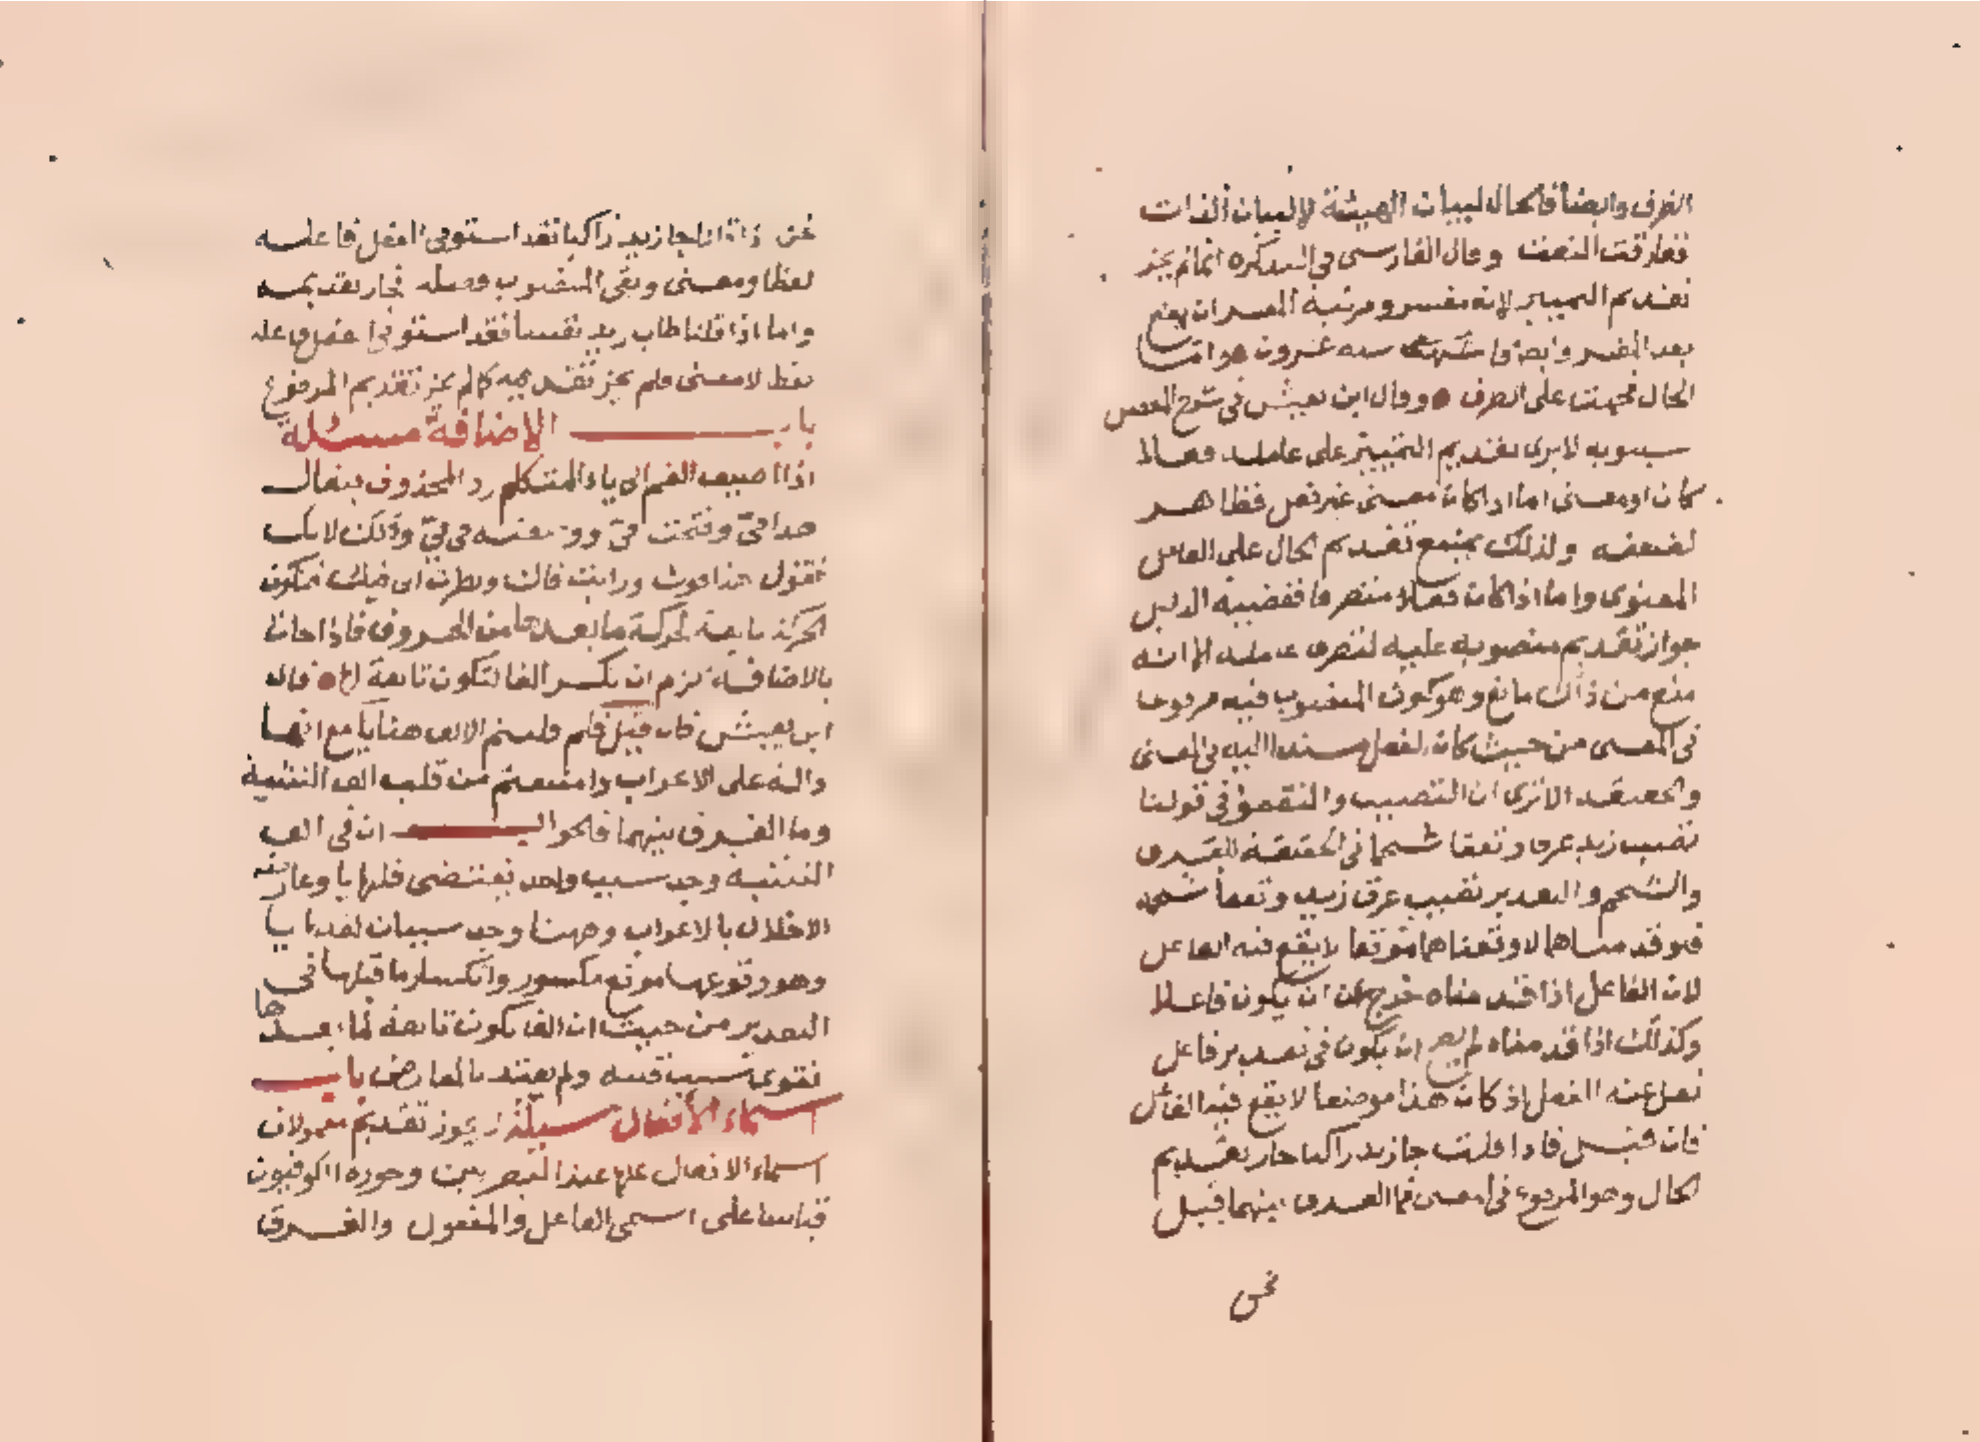 الظرف وايضا فالحال لبيان الهيئة لا لبيان الذات
ففارقت التمييز وقال الفارسى فى التذكرة انما لم يجز
تقديم التمييز لانه مفسر ومرتبة المفسر ان يقع
بعد المفسر وايضا فا شبهه بـ عشرون واما
الحال فحملت على الظرف وقال ابن يعيش فى شرح المفصل
سيبويه لا يرى تقديم التمييز على عامله فعلا
كان او معنى اما اذا كان معنى غير فعل فظاهر
لضعفه ولذلك يمتنع تقديم الحال على العامل
المعنوى واما اذا كان فعلا متصرفا فقضيه الدليل
جواز تقديم منصوبه عليه لتصرف عامله الا انه
منع من ذلك مانع وهو كون المنصوب فيه مرفوعا
فى المعنى من حيث كان الفعل مسندا اليه فى المعنى
والحقيقه الا ترى ان التصبب والتفقؤ فى قولنا
تصبب زيد عرقا وتفقا شحما فى الحقيقه للعرق
والشحم والتقدير تصبب عرق زيد وتفقا شحمه
فلو قدمناهما لاوقعناهما موقعا لا يقع فيه الفاعل
لان الفاعل اذا قدمناه خرج عن ان يكون فاعلا
وكذلك اذا قدمناه لم يصح ان يكون فى تقدير فاعل
نقل عنه الفعل اذ كان هذا موضعا لا يقع فيه الفاعل
فان قيل فاذا قلت جا زيد راكبا جاز تقديم
الحال وهو المرفوع فى المعنى فما الفرق بينهما قيل
نحن
نحن اذا قلنا جا زيد راكبا فقد استوفى الفعل فاعله
لفظا ومعنى وبقى المنصوب فضله فجاز تقديمه
واما اذا قلنا طاب زيد نفسا فقد استوفى الفعل فاعله
لفظا لا معنى فلم يجز تقديمه كما لم يجز تقديم المرفوع
باب الاضافة مسئلة
اذا اضيف الفم الى ياء المتكلم رد المحذوف فيقال
هذا فىّ وفتحت فىّ ووضعته فى فىّ وذلك لانك
تقول هذا فوك ورايت فاك ونظرت الى فيك فتكون
الحركة تابعة لحركة ما بعدها من الحروف فاذا جات
بالاضافة لزم ان يكسر الفا لتكون تابعة لها قال
ابن يعيش فان قيل فلم قلبتم الالف هنا يا مع انها
دالة على الاعراب وامتنعتم من قلب الف التثنية
وما الفرق بينهما فالجواب ان فى الف
التثنيه وجد سبب واحد يقتضى قلبها يا وعارضه
الاخلال بالاعراب وههنا وجد سببان لقلبها يا
وهو وقوعها موقع مكسور وانكسار ما قبلها فى
التقدير من حيث ان الفا تكون تابعة لما بعدها
فقوى سبب قلبه ولم يعتد بالعارض باب
اسماء الافعال مسئلة لا يجوز تقديم معمولات
اسماء الافعال عليها عند البصريين وجوزه الكوفيون
قياسا على اسمى الفاعل والمفعول والفرق